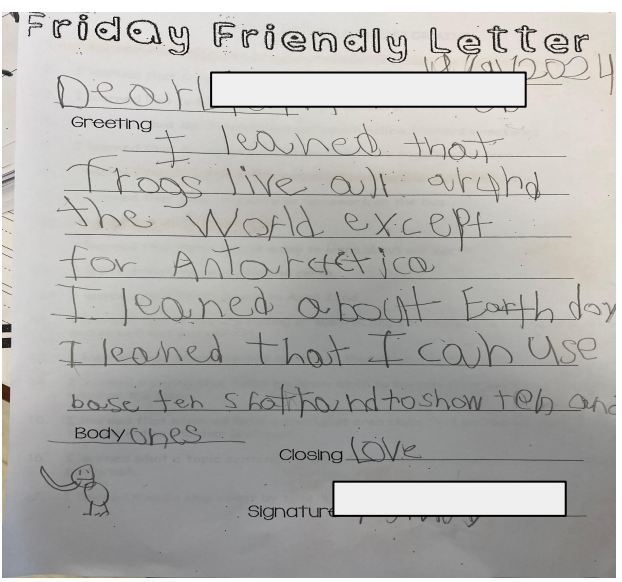 Friday Friendly Letter
2024
Dear
Greeting
I leaned that
frogs live all around
the World except
for Antarctica
I leaned about Earth day
I leaned that I can use
base ten shorthand to show ten and
Body ones
Closing Love
Signature